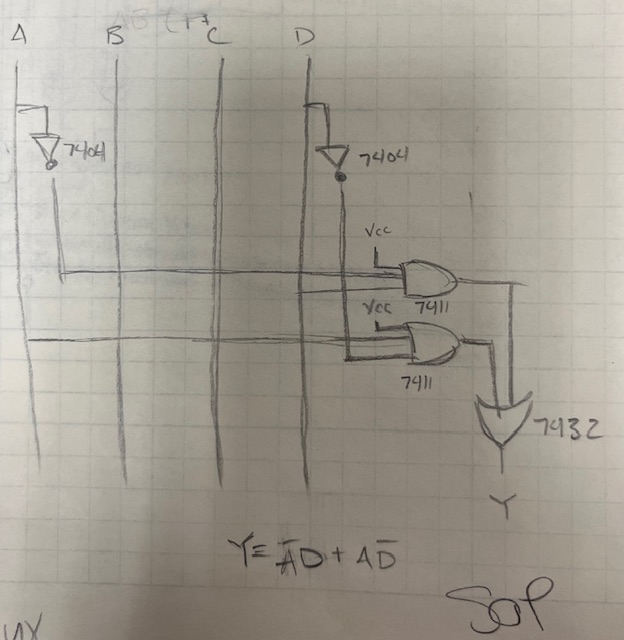 A B C D
7404 7404
Vcc
7411
Vcc
7411
7432
Y
Y = A̅D + AD̅
SOP